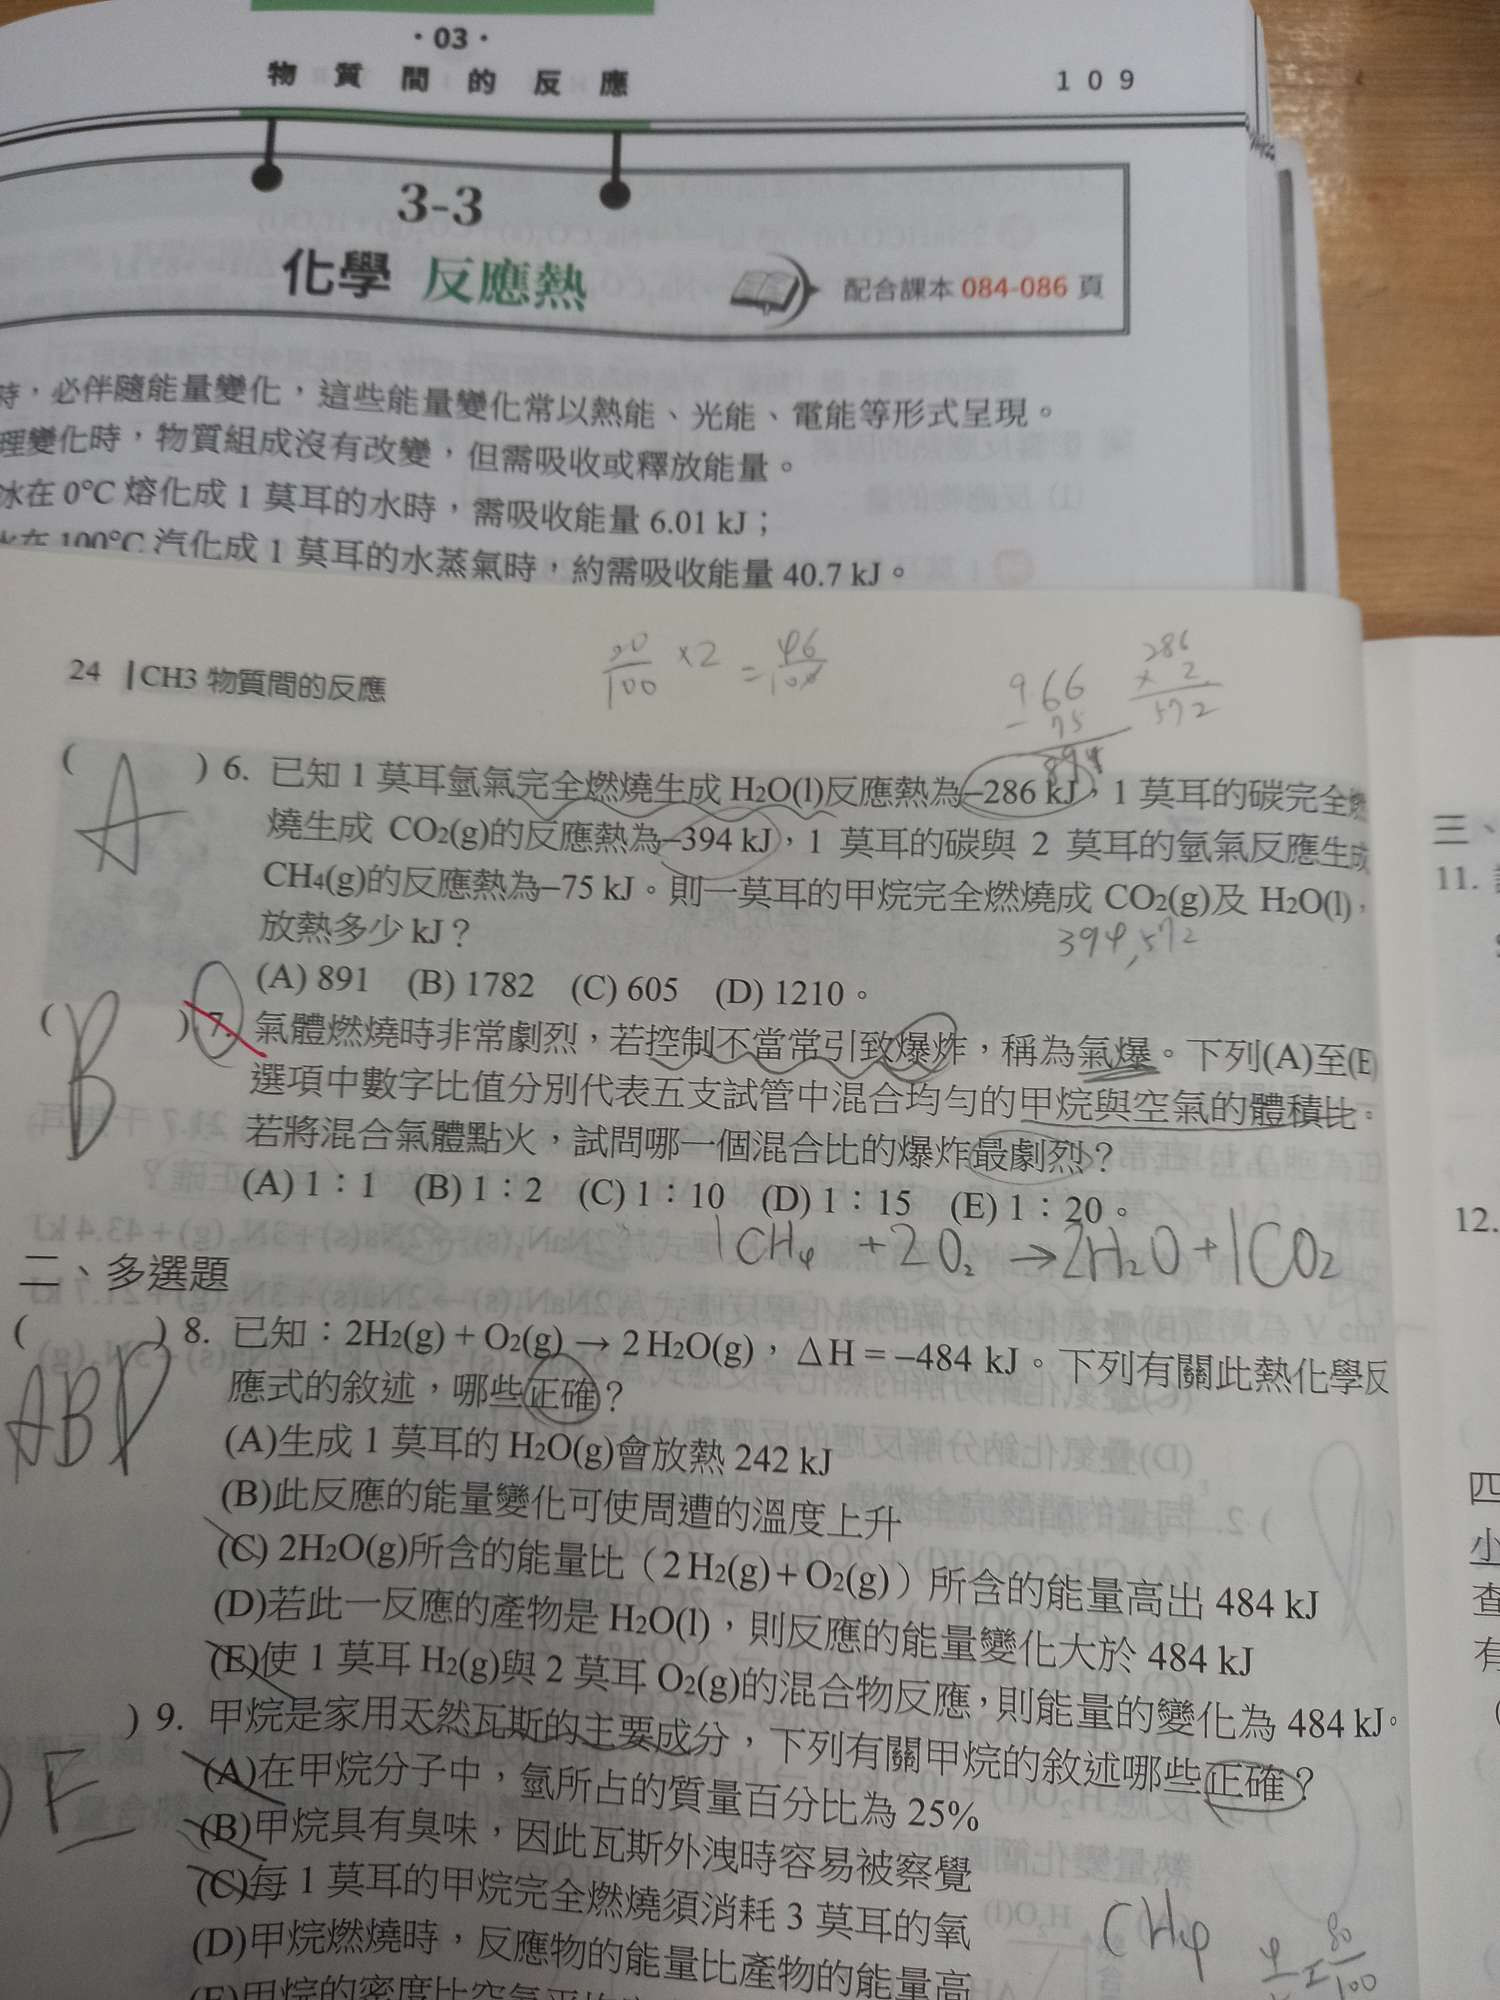 ·03·
物質間的反應
109
3-3
化學 反應熱
配合課本 084-086 頁
時，必伴隨能量變化，這些能量變化常以熱能、光能、電能等形式呈現。
理變化時，物質組成沒有改變，但需吸收或釋放能量。
冰在 0°C 熔化成 1 莫耳的水時，需吸收能量 6.01 kJ；
水在 100°C 汽化成 1 莫耳的水蒸氣時，約需吸收能量 40.7 kJ。
24 CH3 物質間的反應
×2 =
966
- 75
891
286
× 2
572
( A ) 6. 已知 1 莫耳氫氣完全燃燒生成 H2O(l)反應熱為–286 kJ，1 莫耳的碳完全燃
燒生成 CO2(g)的反應熱為–394 kJ，1 莫耳的碳與 2 莫耳的氫氣反應生成
CH4(g)的反應熱為–75 kJ。則一莫耳的甲烷完全燃燒成 CO2(g)及 H2O(l)，
放熱多少 kJ？
394,572
(A) 891 (B) 1782 (C) 605 (D) 1210。
( B ) 7. 氣體燃燒時非常劇烈，若控制不當常引致爆炸，稱為氣爆。下列(A)至(E)
選項中數字比值分別代表五支試管中混合均勻的甲烷與空氣的體積比。
若將混合氣體點火，試問哪一個混合比的爆炸最劇烈？
(A) 1：1 (B) 1：2 (C) 1：10 (D) 1：15 (E) 1：20。
1CH4 + 2O2 → 2H2O + 1CO2
二、多選題
( ABD ) 8. 已知：2H2(g) + O2(g) → 2 H2O(g)，ΔH = –484 kJ。下列有關此熱化學反
應式的敘述，哪些正確？
(A)生成 1 莫耳的 H2O(g)會放熱 242 kJ
(B)此反應的能量變化可使周遭的溫度上升
(C) 2H2O(g)所含的能量比（2 H2(g) + O2(g)）所含的能量高出 484 kJ
(D)若此一反應的產物是 H2O(l)，則反應的能量變化大於 484 kJ
(E)使 1 莫耳 H2(g)與 2 莫耳 O2(g)的混合物反應，則能量的變化為 484 kJ。
) 9. 甲烷是家用天然瓦斯的主要成分，下列有關甲烷的敘述哪些正確？
DE
(A)在甲烷分子中，氫所占的質量百分比為 25%
(B)甲烷具有臭味，因此瓦斯外洩時容易被察覺
(C)每 1 莫耳的甲烷完全燃燒須消耗 3 莫耳的氧
(D)甲烷燃燒時，反應物的能量比產物的能量高
CH4
三、
11.
12.
四
小
查
有